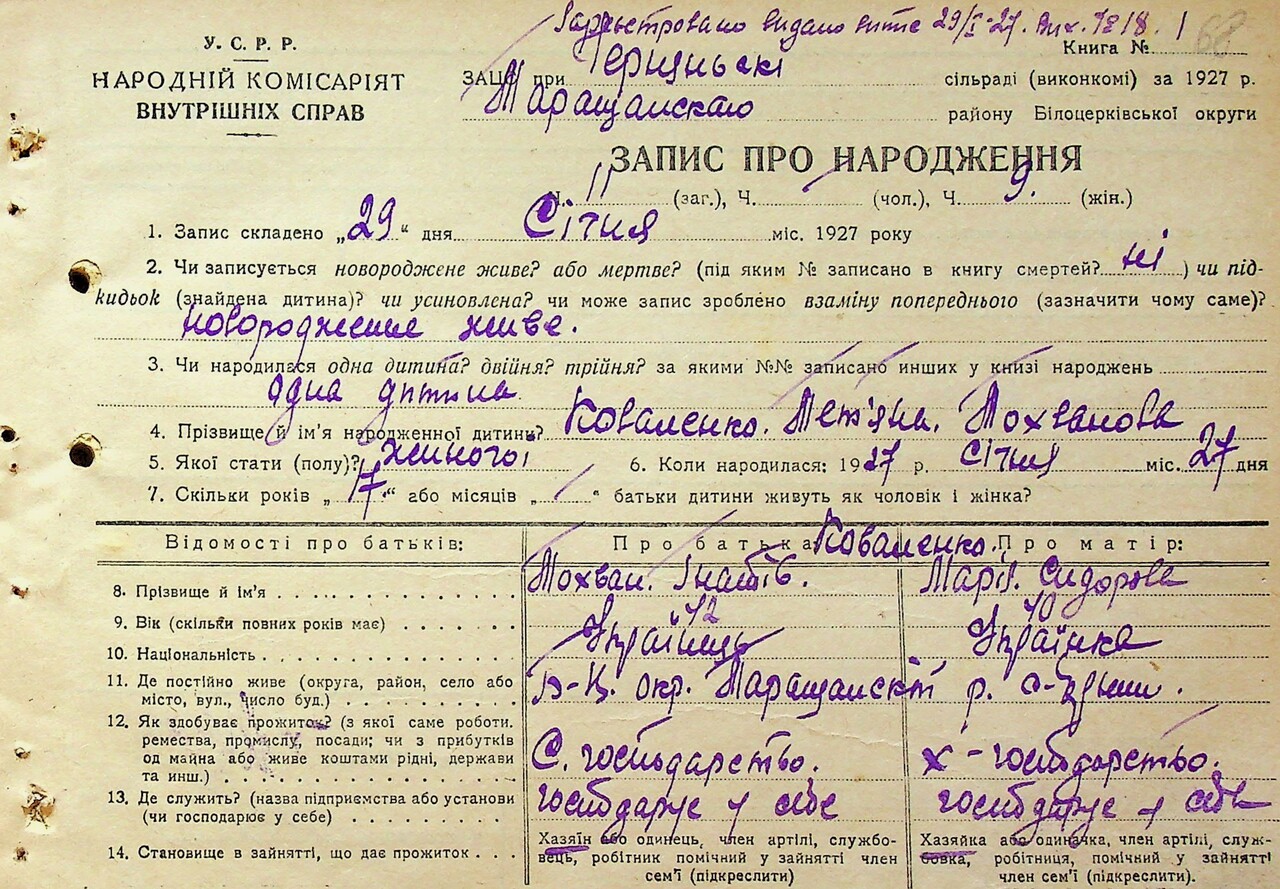 Зареєстровано видано витяг 29/I-27. Вих. № 18.
У. С. Р. Р.
НАРОДНІЙ КОМІСАРІЯТ
ВНУТРІШНІХ СПРАВ
Книга № 68
ЗАЦС при сільраді (виконкомі) за 1927 р.
Таращанскаго району Білоцерківської округи
ЗАПИС ПРО НАРОДЖЕННЯ
Ч. 11 (заг.), Ч. (чол.), Ч. 9. (жін.)
1. Запис складено „29“ дня Січня міс. 1927 року
2. Чи записується новороджене живе? або мертве? (під яким № записано в книгу смертей? ні ) чи під-
кидьок (знайдена дитина)? чи усиновлена? чи може запис зроблено взаміну попереднього (зазначити чому саме)?
новороджене живе.
3. Чи народилася одна дитина? двійня? трійня? за якими №№ записано инших у книзі народжень
одна дитина
4. Прізвище й ім'я народженної дитини? Коваленко. Тет'яна. Тохванова
5. Якої стати (полу)? жиночої 6. Коли народилася: 1927 р. січня міс. 27 дня
7. Скільки років „17“ або місяців „ “ батьки дитини живуть як чоловік і жінка?
Відомості про батьків: Про батька Коваленко. Про матір:
8. Прізвище й ім'я Тохван. Гнатів. Марія. Сидорова
9. Вік (скільки повних років має) 42 40
10. Національність Українець Українка
11. Де постійно живе (округа, район, село або
місто, вул., число буд.) Б-Ц. окр. Таращанскій р. с-
12. Як здобуває прожиток? (з якої саме роботи.
ремества, промислу, посади; чи з прибутків
од майна або живе коштами рідні, держави
та инш.) С. господарство. х-господарство.
13. Де служить? (назва підприємства або установи
(чи господарює у себе) господарує у себе господарує у себе
14. Становище в зайнятті, що дає прожиток
Хазяїн або одинець, член артілі, службо-
вець, робітник помічний у зайнятті член
сем'ї (підкреслити)
Хазяйка або одиначка, член артілі, служ-
бовка, робітниця, помічний у зайнятті
член сем'ї (підкреслити).